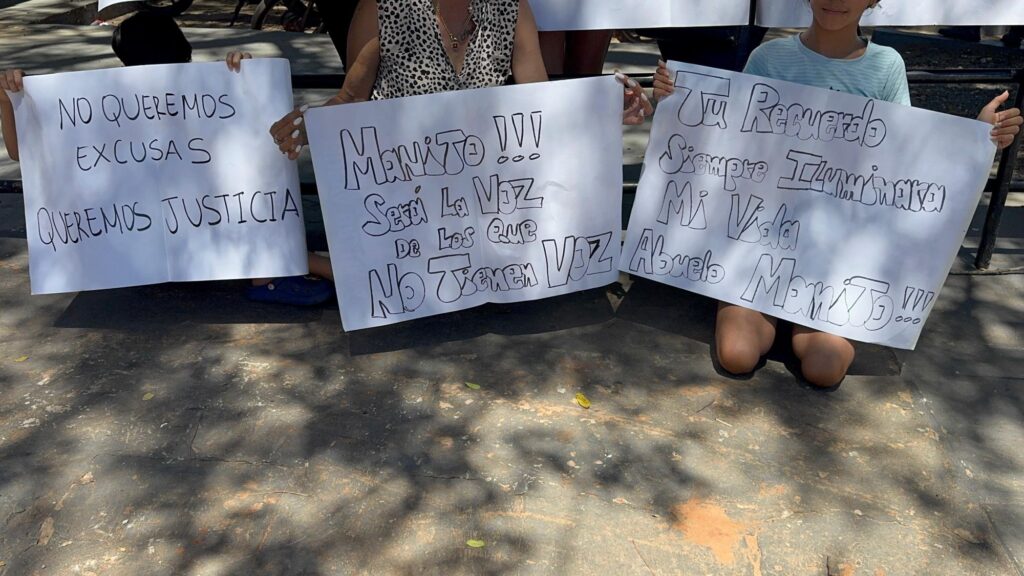 NO QUEREMOS
EXCUSAS
QUEREMOS JUSTICIA
MANiTO !!!
Será La VOZ
De Los que
No Tienen VOZ
Tu Recuerdo
Siempre Iluminara
Mi Vida
Abuelo ManiTO!!!